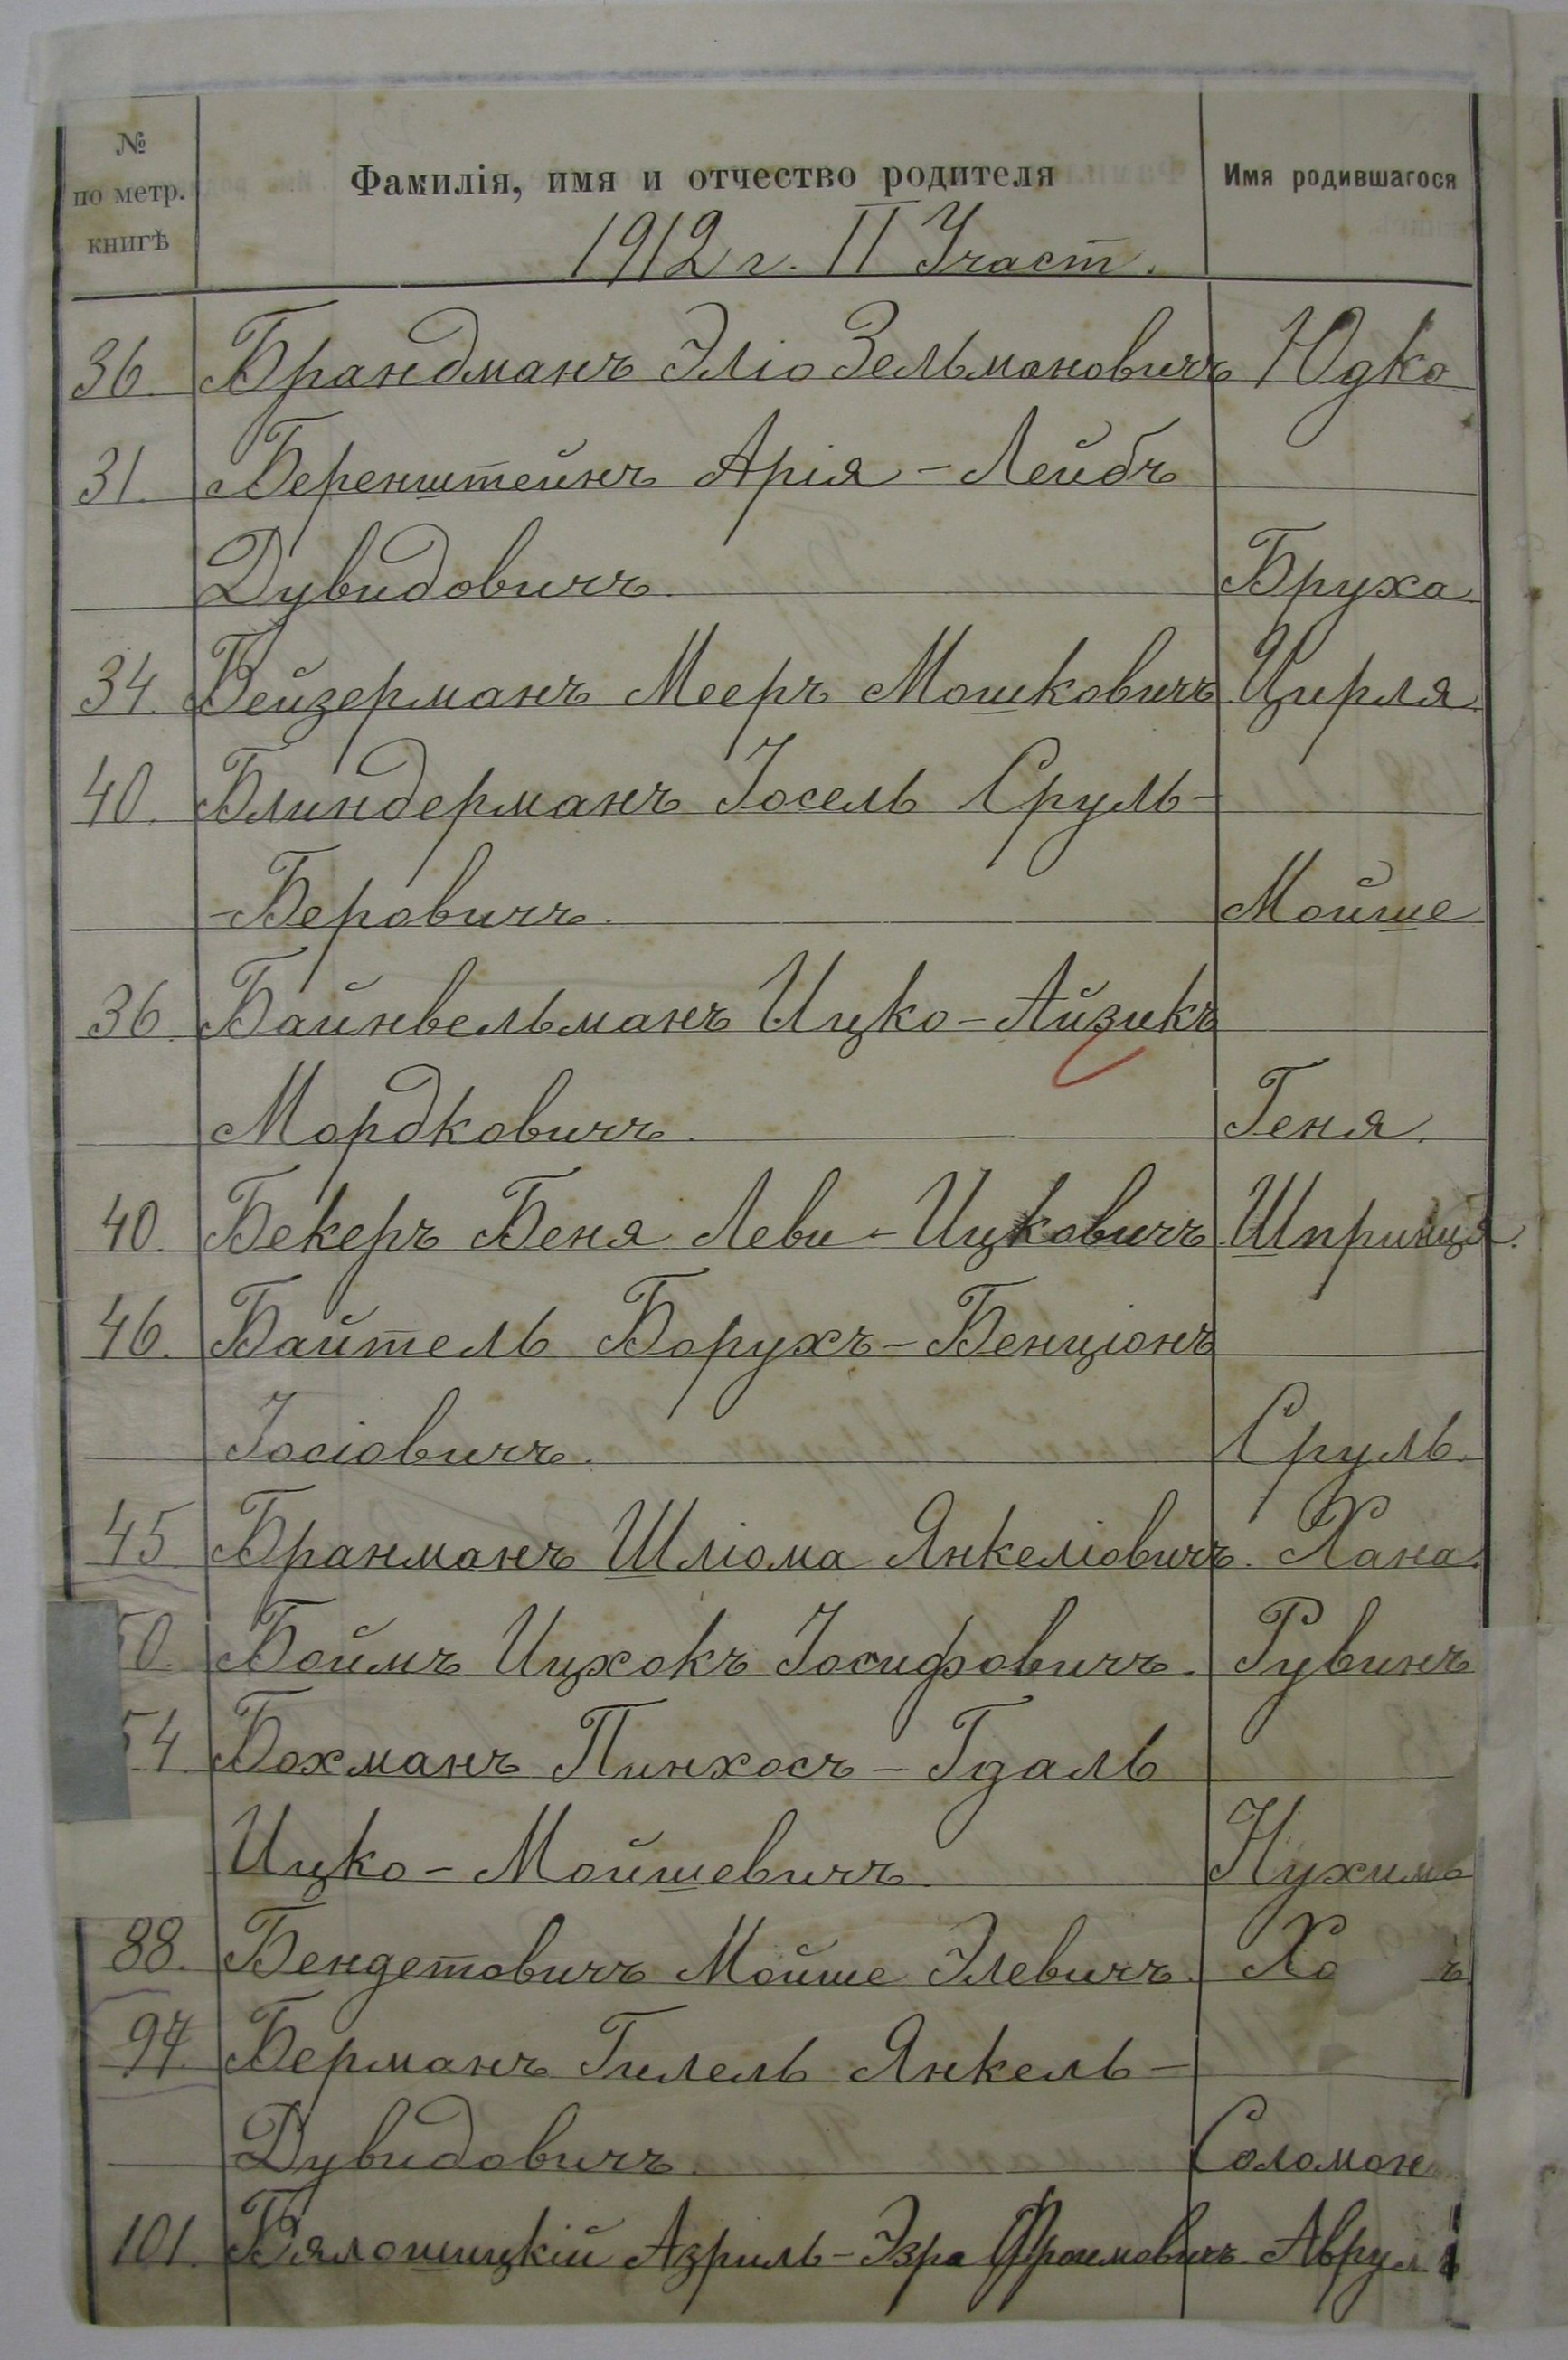 № по метр. книгѣ Фамилія, имя и отчество родителя Имя родившагося
1912 г. II Участ.
36. Брандманъ Эліо Зельмановичъ Юдко
31. Беренштейнъ Арія-Лейбъ
Дувидовичъ. Бруха
34. Вейзерманъ Мееръ Мошковичъ Цирля.
40. Блиндерманъ Іосель Сруль-
-Беровичъ. Мойше
36. Байнвельманъ Ицко-Айзикъ
Мордковичъ. Геня.
40. Бекеръ Беня Леви-Ицковичъ Шпринця.
46. Байтель Борухъ-Бенціонъ
Іосіовичъ. Сруль.
45 Бранманъ Шліома Янкеліовичъ. Хана.
50. Боймъ Ицхокъ Іосифовичъ. Рувинъ
54 Бохманъ Пинхосъ-Гдаль
Ицко-Мойшевичъ. Нухимъ
88. Бендетовичъ Мойше Элевичъ. Хо ъ
97. Берманъ Гилель Янкель-
Дувидовичъ. Соломон
101. Бялошицкій Азриль-Эзра Фроимовичъ Аврум